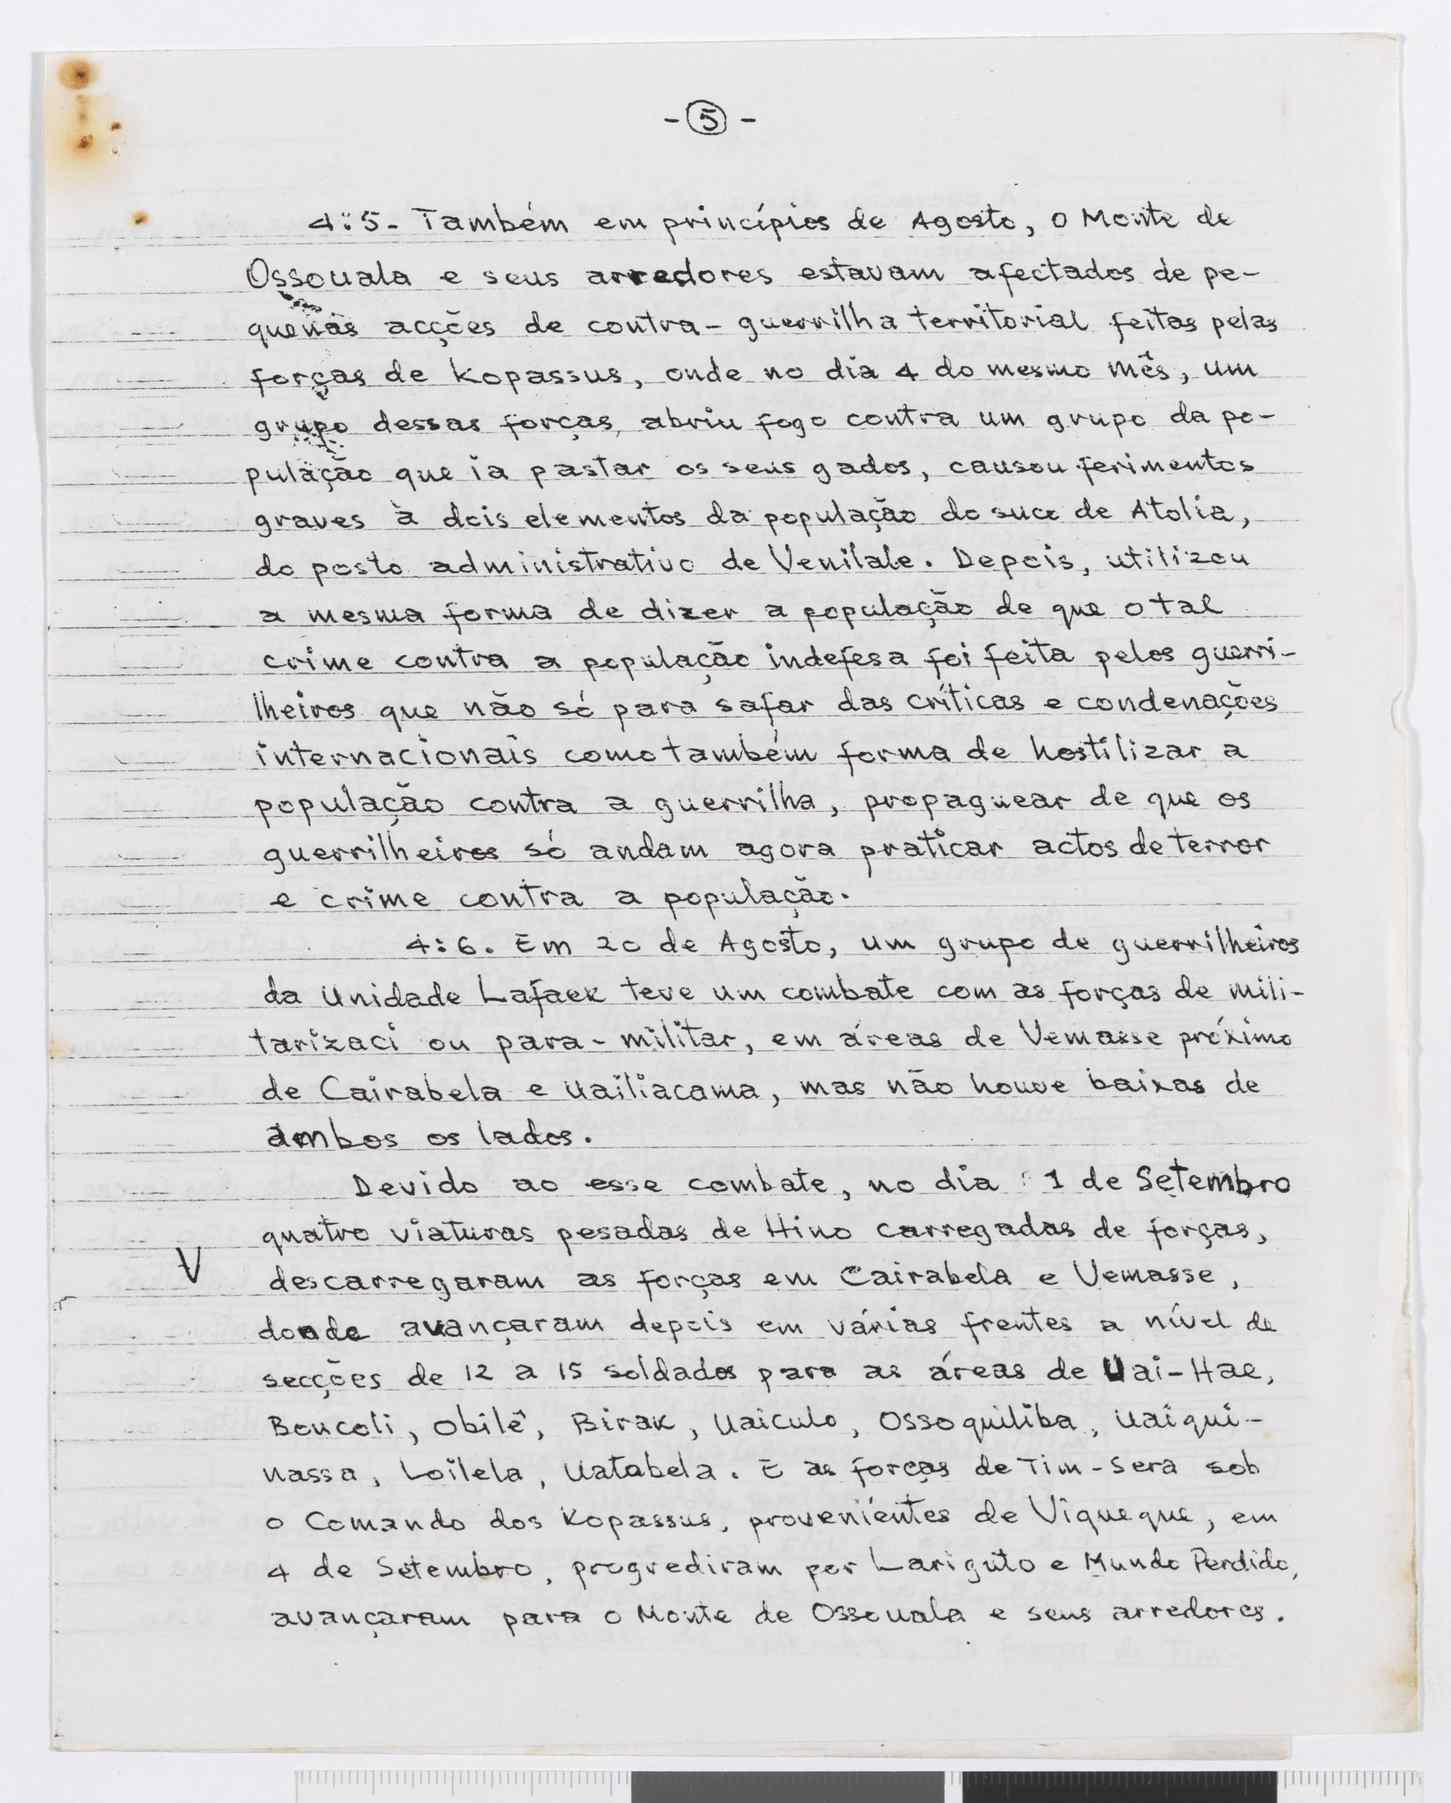 - 5 -
4:5- Também em princípios de Agosto, o Monte de
Ossouala e seus arredores estavam afectados de pe-
quenas acções de contra-guerrilha territorial feitas pelas
forças de Kopassus, onde no dia 4 do mesmo mês, um
grupo dessas forças, abriu fogo contra um grupo da po-
pulação que ia pastar os seus gados, causou ferimentos
graves à dois elementos da população do suco de Atolia,
do posto administrativo de Venilale. Depois, utilizou
a mesma forma de dizer a população de que o tal
crime contra a população indefesa foi feita pelos guerri-
lheiros que não só para safar das críticas e condenações
internacionais como também forma de hostilizar a
população contra a guerrilha, propaguear de que os
guerrilheiros só andam agora praticar actos de terror
e crime contra a população.
4:6. Em 20 de Agosto, um grupo de guerrilheiros
da Unidade Lafaek teve um combate com as forças de mili-
tarizaci ou para-militar, em áreas de Vemasse próximo
de Cairabela e Uailiacama, mas não houve baixas de
ambos os lados.
Devido ao esse combate, no dia 1 de Setembro
quatro viaturas pesadas de Hino carregadas de forças,
V
descarregaram as forças em Cairabela e Vemasse,
donde avançaram depois em várias frentes a nível de
secções de 12 a 15 soldados para as áreas de Uai-Hae,
Boucoli, Obilê, Birak, Uaiculo, Ossoquiliba, Uaiqui-
nassa, Loilela, Uatabela. E as forças de Tim-Sera sob
o Comando dos Kopassus, proveniéntes de Viqueque, em
4 de Setembro, progrediram por Lariguto e Mundo Perdido,
avançaram para o Monte de Ossouala e seus arredores.